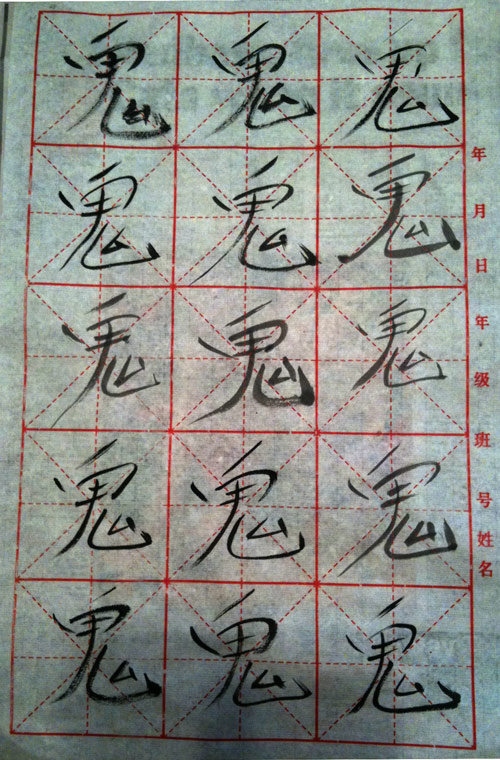 鬼鬼鬼
鬼鬼鬼
鬼鬼鬼
鬼鬼鬼
鬼鬼鬼
年月日年级班号姓名